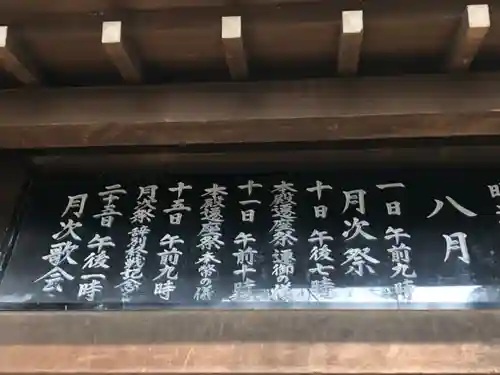 八月
一日 午前九時
月次祭
十日 午後七時
本殿遷座祭 遷御の儀
十一日 午前十時
本殿遷座祭 本幣の儀
十五日 午前九時
月次祭 特別参列記念
二十五日 午後一時
月次歌会